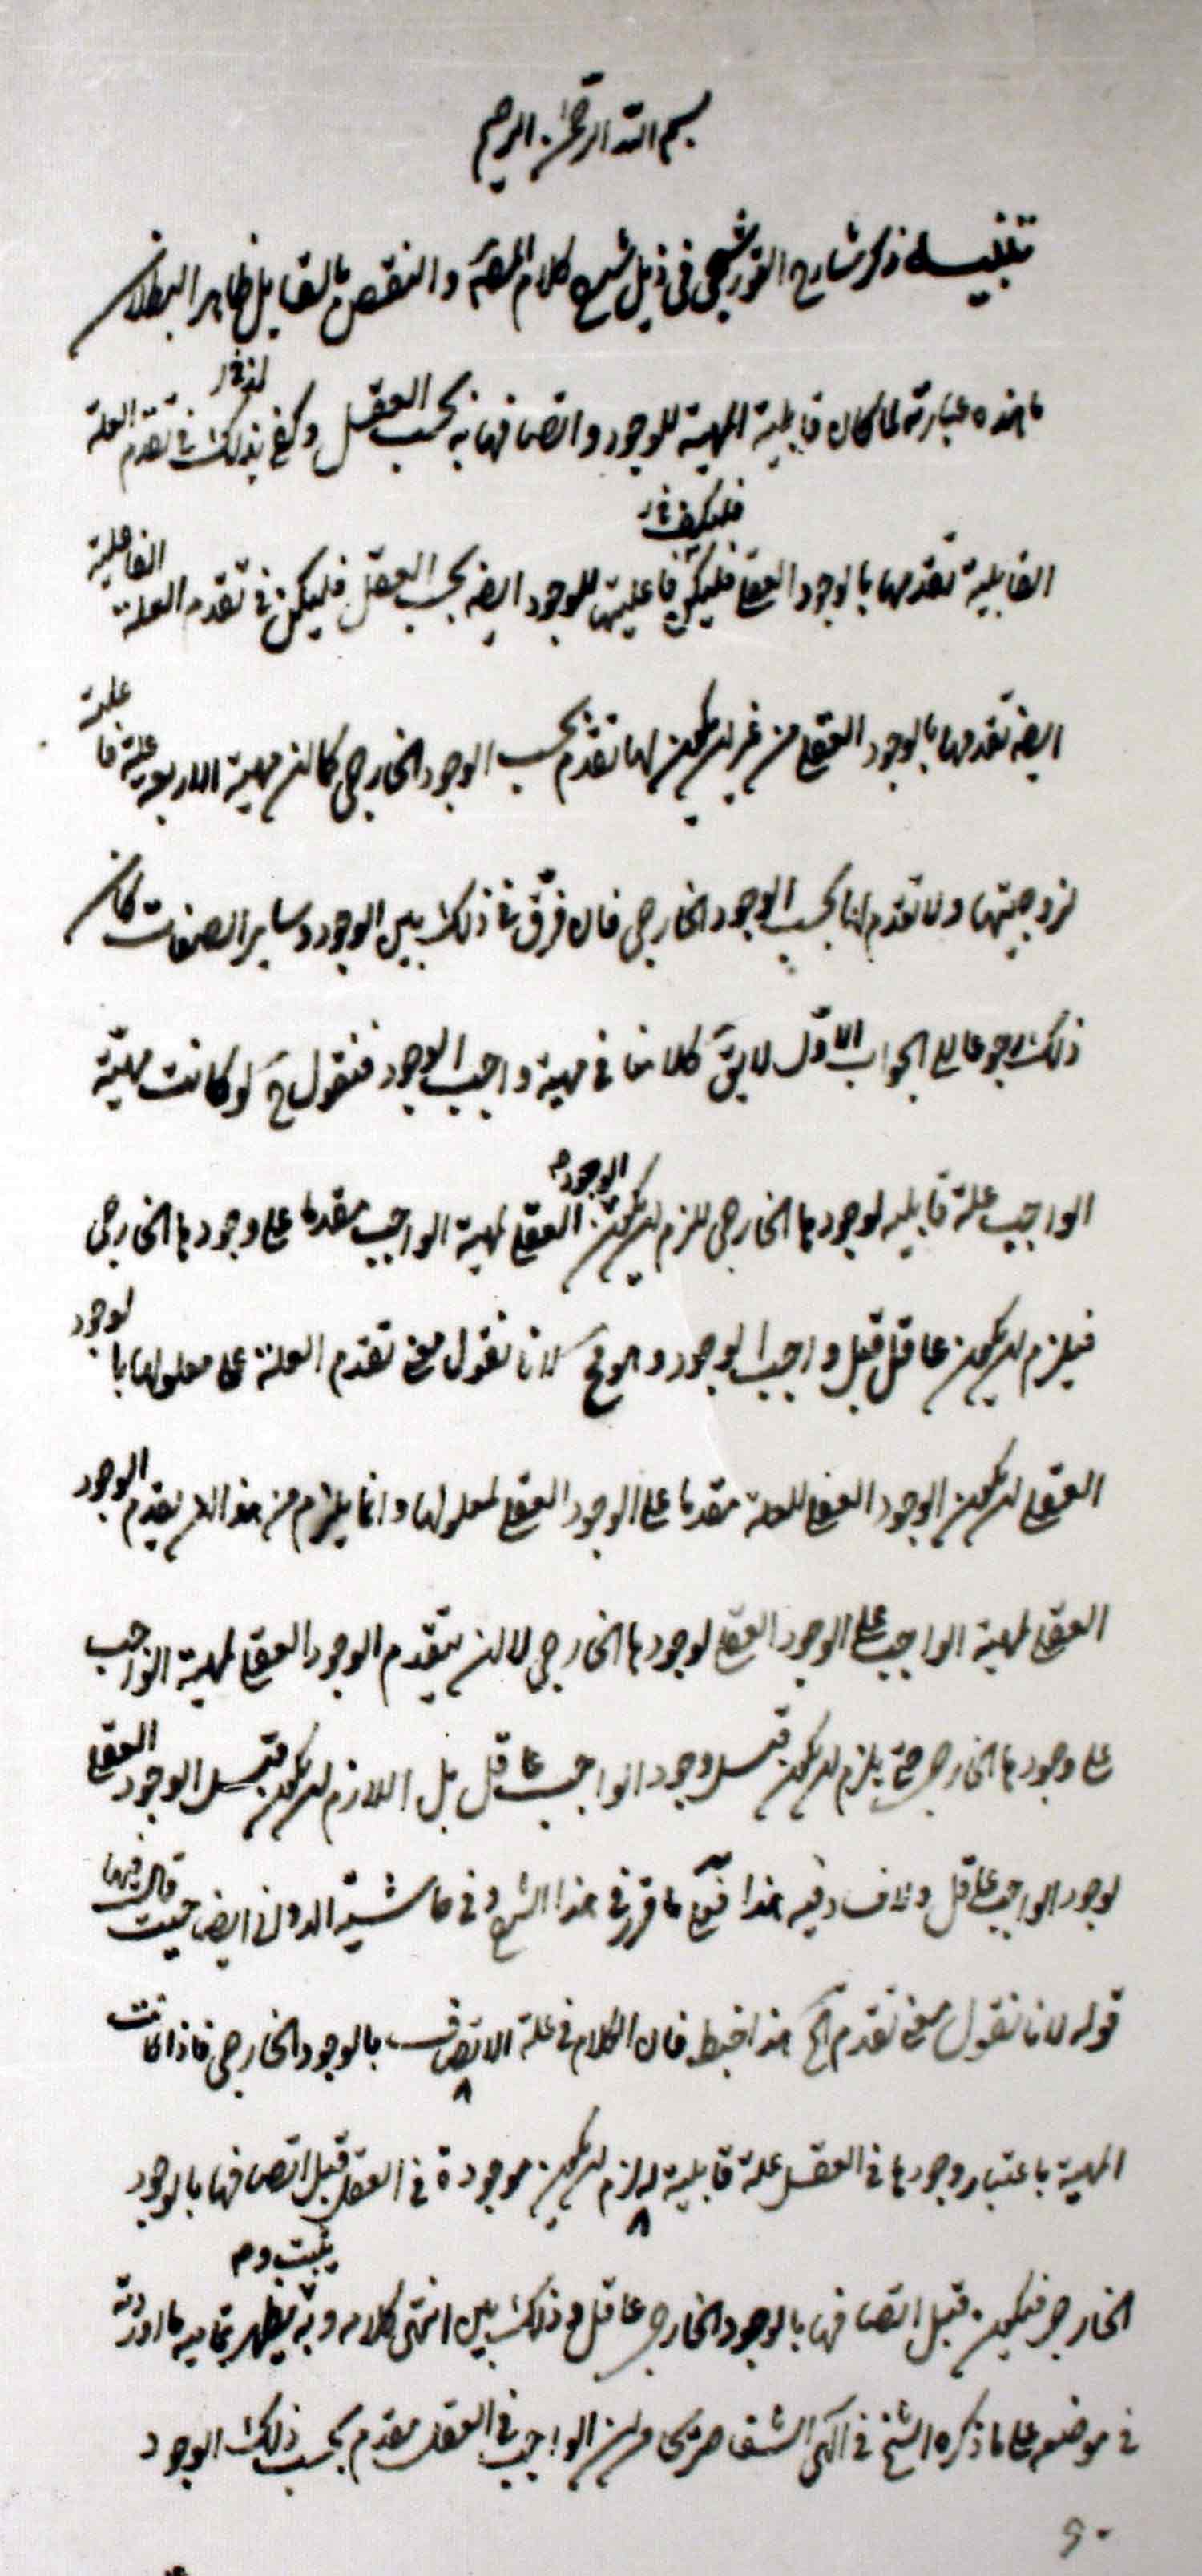 بسم الله الرحمن الرحيم
تنبيه ذكر شارح القوشجي في ذيل شرح كلام المصـ والنقض بالقابل ظاهر البطلان
ما هذه عبارته لما كان قابلية المهية للوجود واتصافها به بحسب العقل وكفى بذلك في تقدم العلة
القابلية تقدمها بالوجود العقلي فليكن فاعليتها للوجود ايضا بحسب العقل فليكن في تقدم العلة الفاعلية
ايضا تقدمها بالوجود العقلي من غير ان يكون لها تقدم بحسب الوجود الخارجي كما ان مهية الاربعة علة فاعلية
لزوجيتها ولا تقدم لها بحسب الوجود الخارجي فان فرق في ذلك بين الوجود وساير الصفات كان
ذلك رجوعا الى الجواب الاول لا يقـ كلامنا في مهية واجب الوجود فنقول ح لو كانت مهية
الواجب علة قابلية لوجودها الخارجي للزم ان يكون الوجود العقلي لمهية الواجب مقدما على وجودها الخارجي
فيلزم ان يكون عاقل قبل واجب الوجود وهو مح لانا نقول معنى تقدم العلة على معلولها بالوجود
العقلي ان يكون الوجود العقلي للعلة مقدما على الوجود العقلي لمعلولها وانما يلزم من هذا ان يتقدم الوجود
العقلي لمهية الواجب على الوجود العقلي لوجودها الخارجي لا ان يتقدم الوجود العقلي لمهية الواجب
على وجودها الخارجي حتى يلزم ان يكون قبل وجود الواجب عاقل بل اللازم ان يكون قبل الوجود العقلي
لوجود الواجب عاقل ولا فساد فيه هذا ما قرر في هذا الشرح وفي حاشية الدواني ايضا حيث قال فيها
قوله لانا نقول معنى تقدم الخ هذا خبط فان الكلام في علة الاتصاف بالوجود الخارجي فاذا كانت
المهية باعتبار وجودها في العقل علة قابلية له لزم ان يكون موجودة في العقل قبل اتصافها بالوجود
الخارجي فيكون قبل اتصافها بالوجود الخارجي عاقل وذلك بين انتهى كلامه وبه يثبت ويظهر تمامية ما اوردته
في موضعه على ما ذكره الشيخ في الهي الشفا صريحا من ان الواجب في العقل مقدم بحسب ذلك الوجود